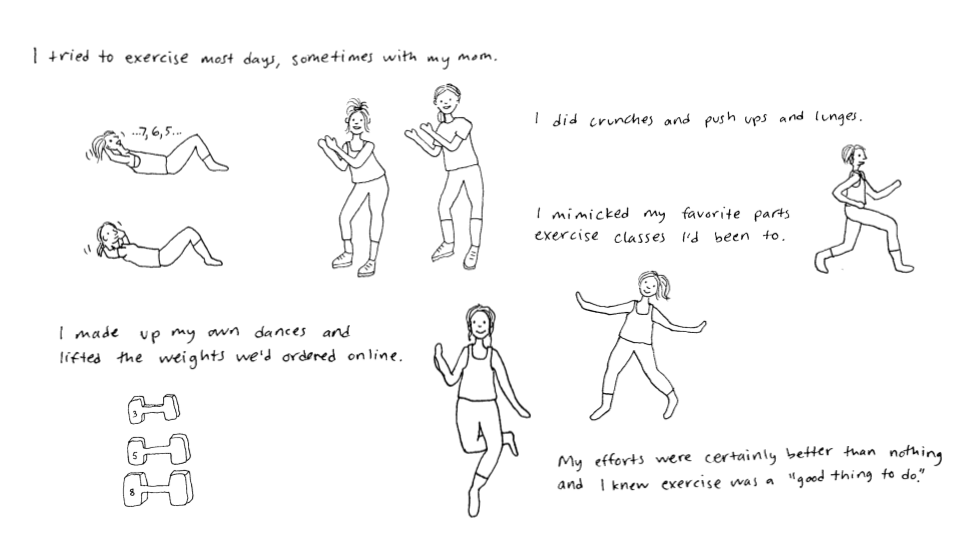 I tried to exercise most days, sometimes with my mom.
...7, 6, 5...
I did crunches and push ups and lunges.
I mimicked my favorite parts
exercise classes I'd been to.
I made up my own dances and
lifted the weights we'd ordered online.
3
5
8
My efforts were certainly better than nothing
and I knew exercise was a "good thing to do."